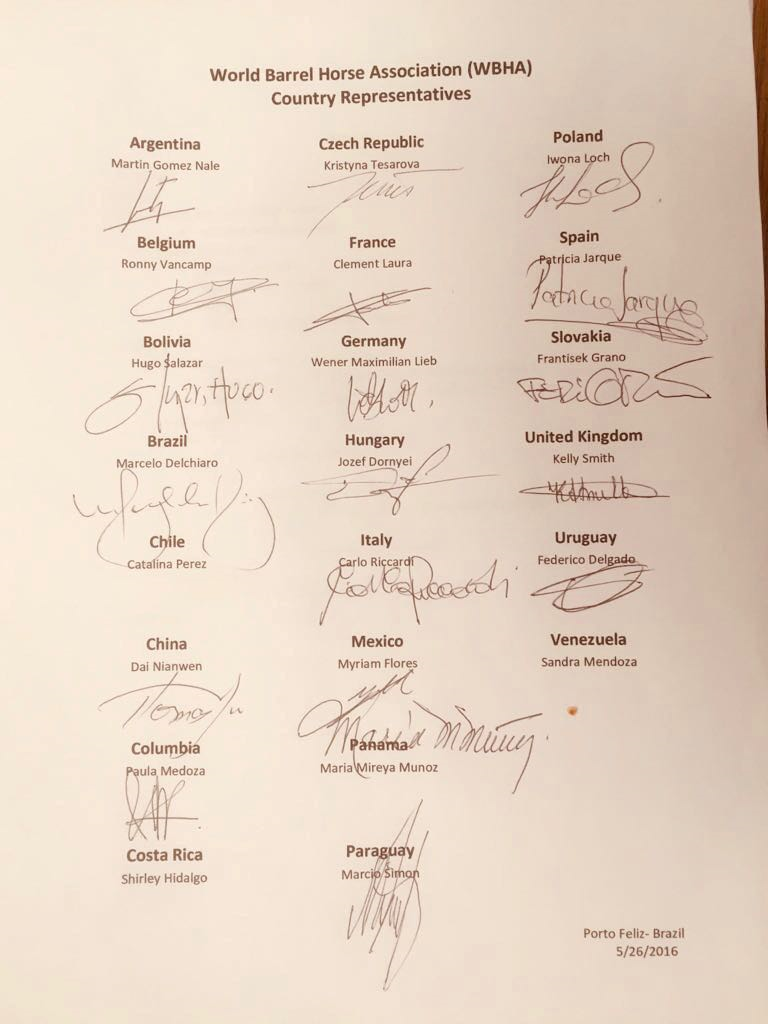 World Barrel Horse Association (WBHA)
Country Representatives
Argentina
Martin Gomez Nale
Czech Republic
Kristyna Tesarova
Poland
Iwona Loch
Belgium
Ronny Vancamp
France
Clement Laura
Spain
Patricia Jarque
Patricia Jarque
Bolivia
Hugo Salazar
Germany
Wener Maximilian Lieb
Slovakia
Frantisek Grano
Brazil
Marcelo Delchiaro
Hungary
Jozef Dornyei
United Kingdom
Kelly Smith
Chile
Catalina Perez
Italy
Carlo Riccardi
Uruguay
Federico Delgado
China
Dai Nianwen
Mexico
Myriam Flores
Venezuela
Sandra Mendoza
Columbia
Paula Medoza
Panama
Maria Mireya Munoz
Costa Rica
Shirley Hidalgo
Paraguay
Marcio Simon
Porto Feliz- Brazil
5/26/2016